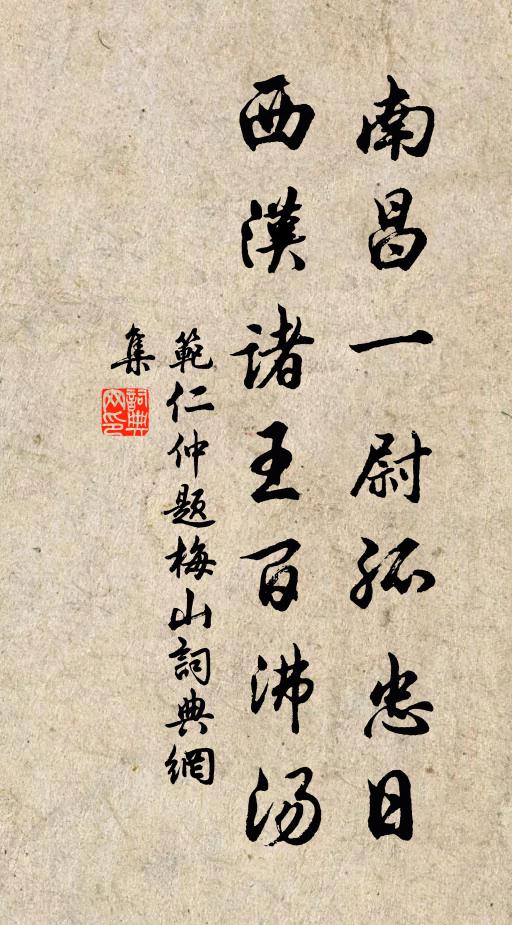 南昌一尉孤忠日
西漢诸王百沸汤
範仁仲题梅山詞典網
集
詞典網印